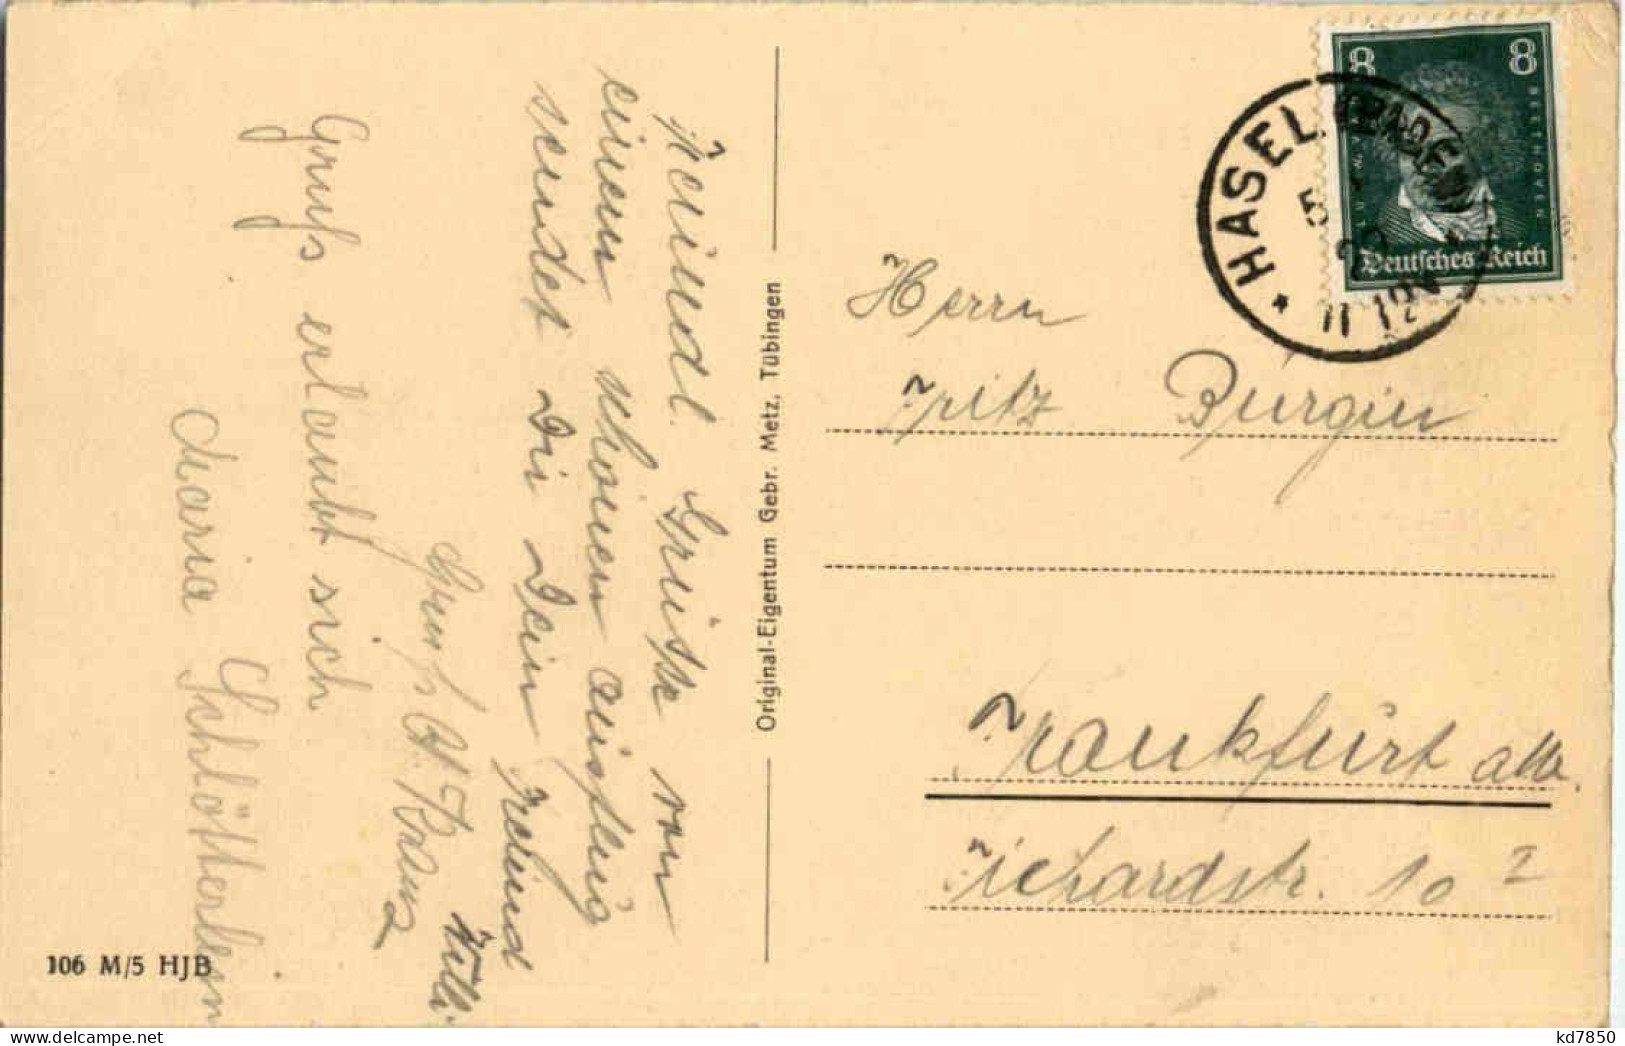 Freundl. Grüsse von
einem schönen Ausflug
sendet Dir Dein Freund
Willi.
Gruß H. Kraus
Gruß erlaubt sich
Maria Schlötterlein
106 M/5 HJB
Original-Eigentum Gebr. Metz, Tübingen
8 8
BEETHOVEN
Deutsches Reich
HASEL (BADEN)
5
11-12V
Herrn
Fritz Bürgin
Frankfurt a/M.
Richardstr. 10 I
kd7850